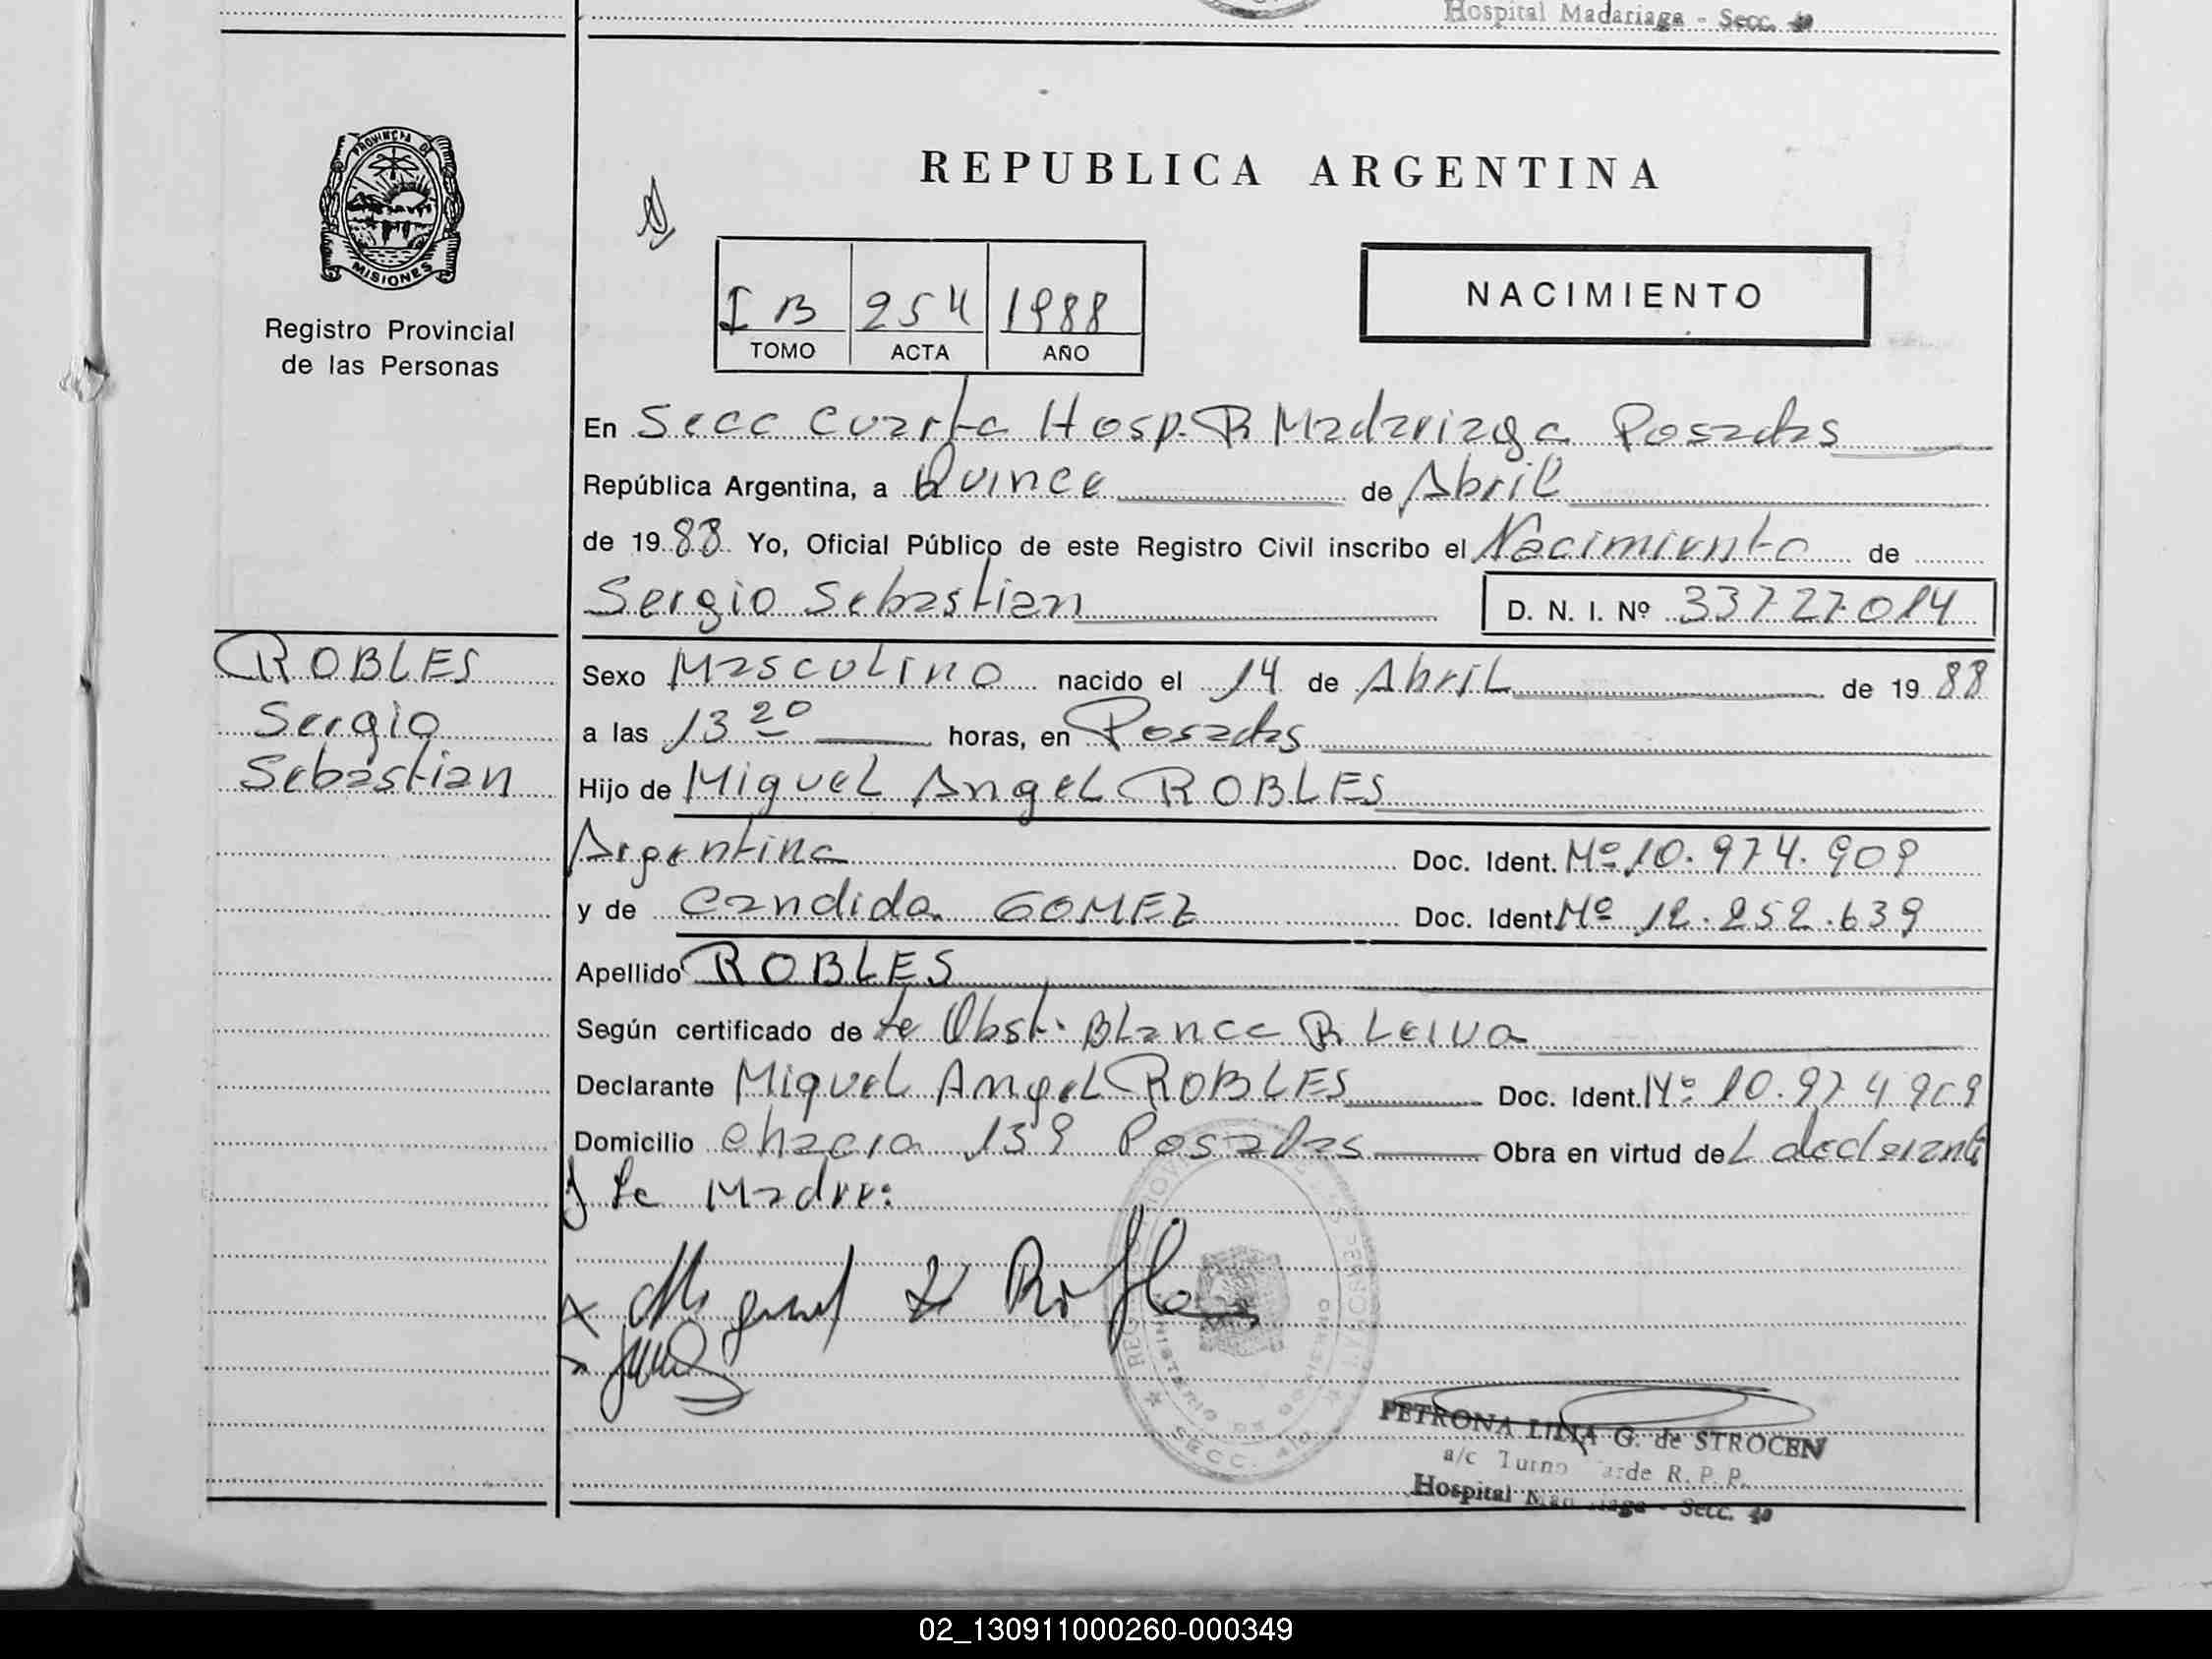 Hospital Madariaga - Secc. 4º
PROVINCIA DE
MISIONES
Registro Provincial
de las Personas
REPUBLICA ARGENTINA
I B 254 1988
TOMO ACTA AÑO
NACIMIENTO
En Secc Cuarta Hosp. R Madariaga Posadas
República Argentina, a Quince de Abril
de 1988 Yo, Oficial Público de este Registro Civil inscribo el Nacimiento de
Sergio Sebastian D. N. I. Nº 33727014
ROBLES
Sergio
Sebastian
Sexo Masculino nacido el 14 de Abril de 1988
a las 13 20 horas, en Posadas
Hijo de Miguel Angel ROBLES
Argentina Doc. Ident. Nº 10.974.909
y de Candida GOMEZ Doc. Ident. Nº 12.252.639
Apellido ROBLES
Según certificado de la Obst. Blanca R Leiva
Declarante Miguel Angel ROBLES Doc. Ident. Nº 10.974909
Domicilio Chacra 139 Posadas Obra en virtud del declarante
y la Madre:
Miguel A Robles
MINISTERIO DE GOBIERNO
SECC. 4º
PETRONA LIDIA G. de STROCEN
a/c Turno Tarde R. P. P.
Hospital Madariaga - Secc. 4º
02_130911000260-000349